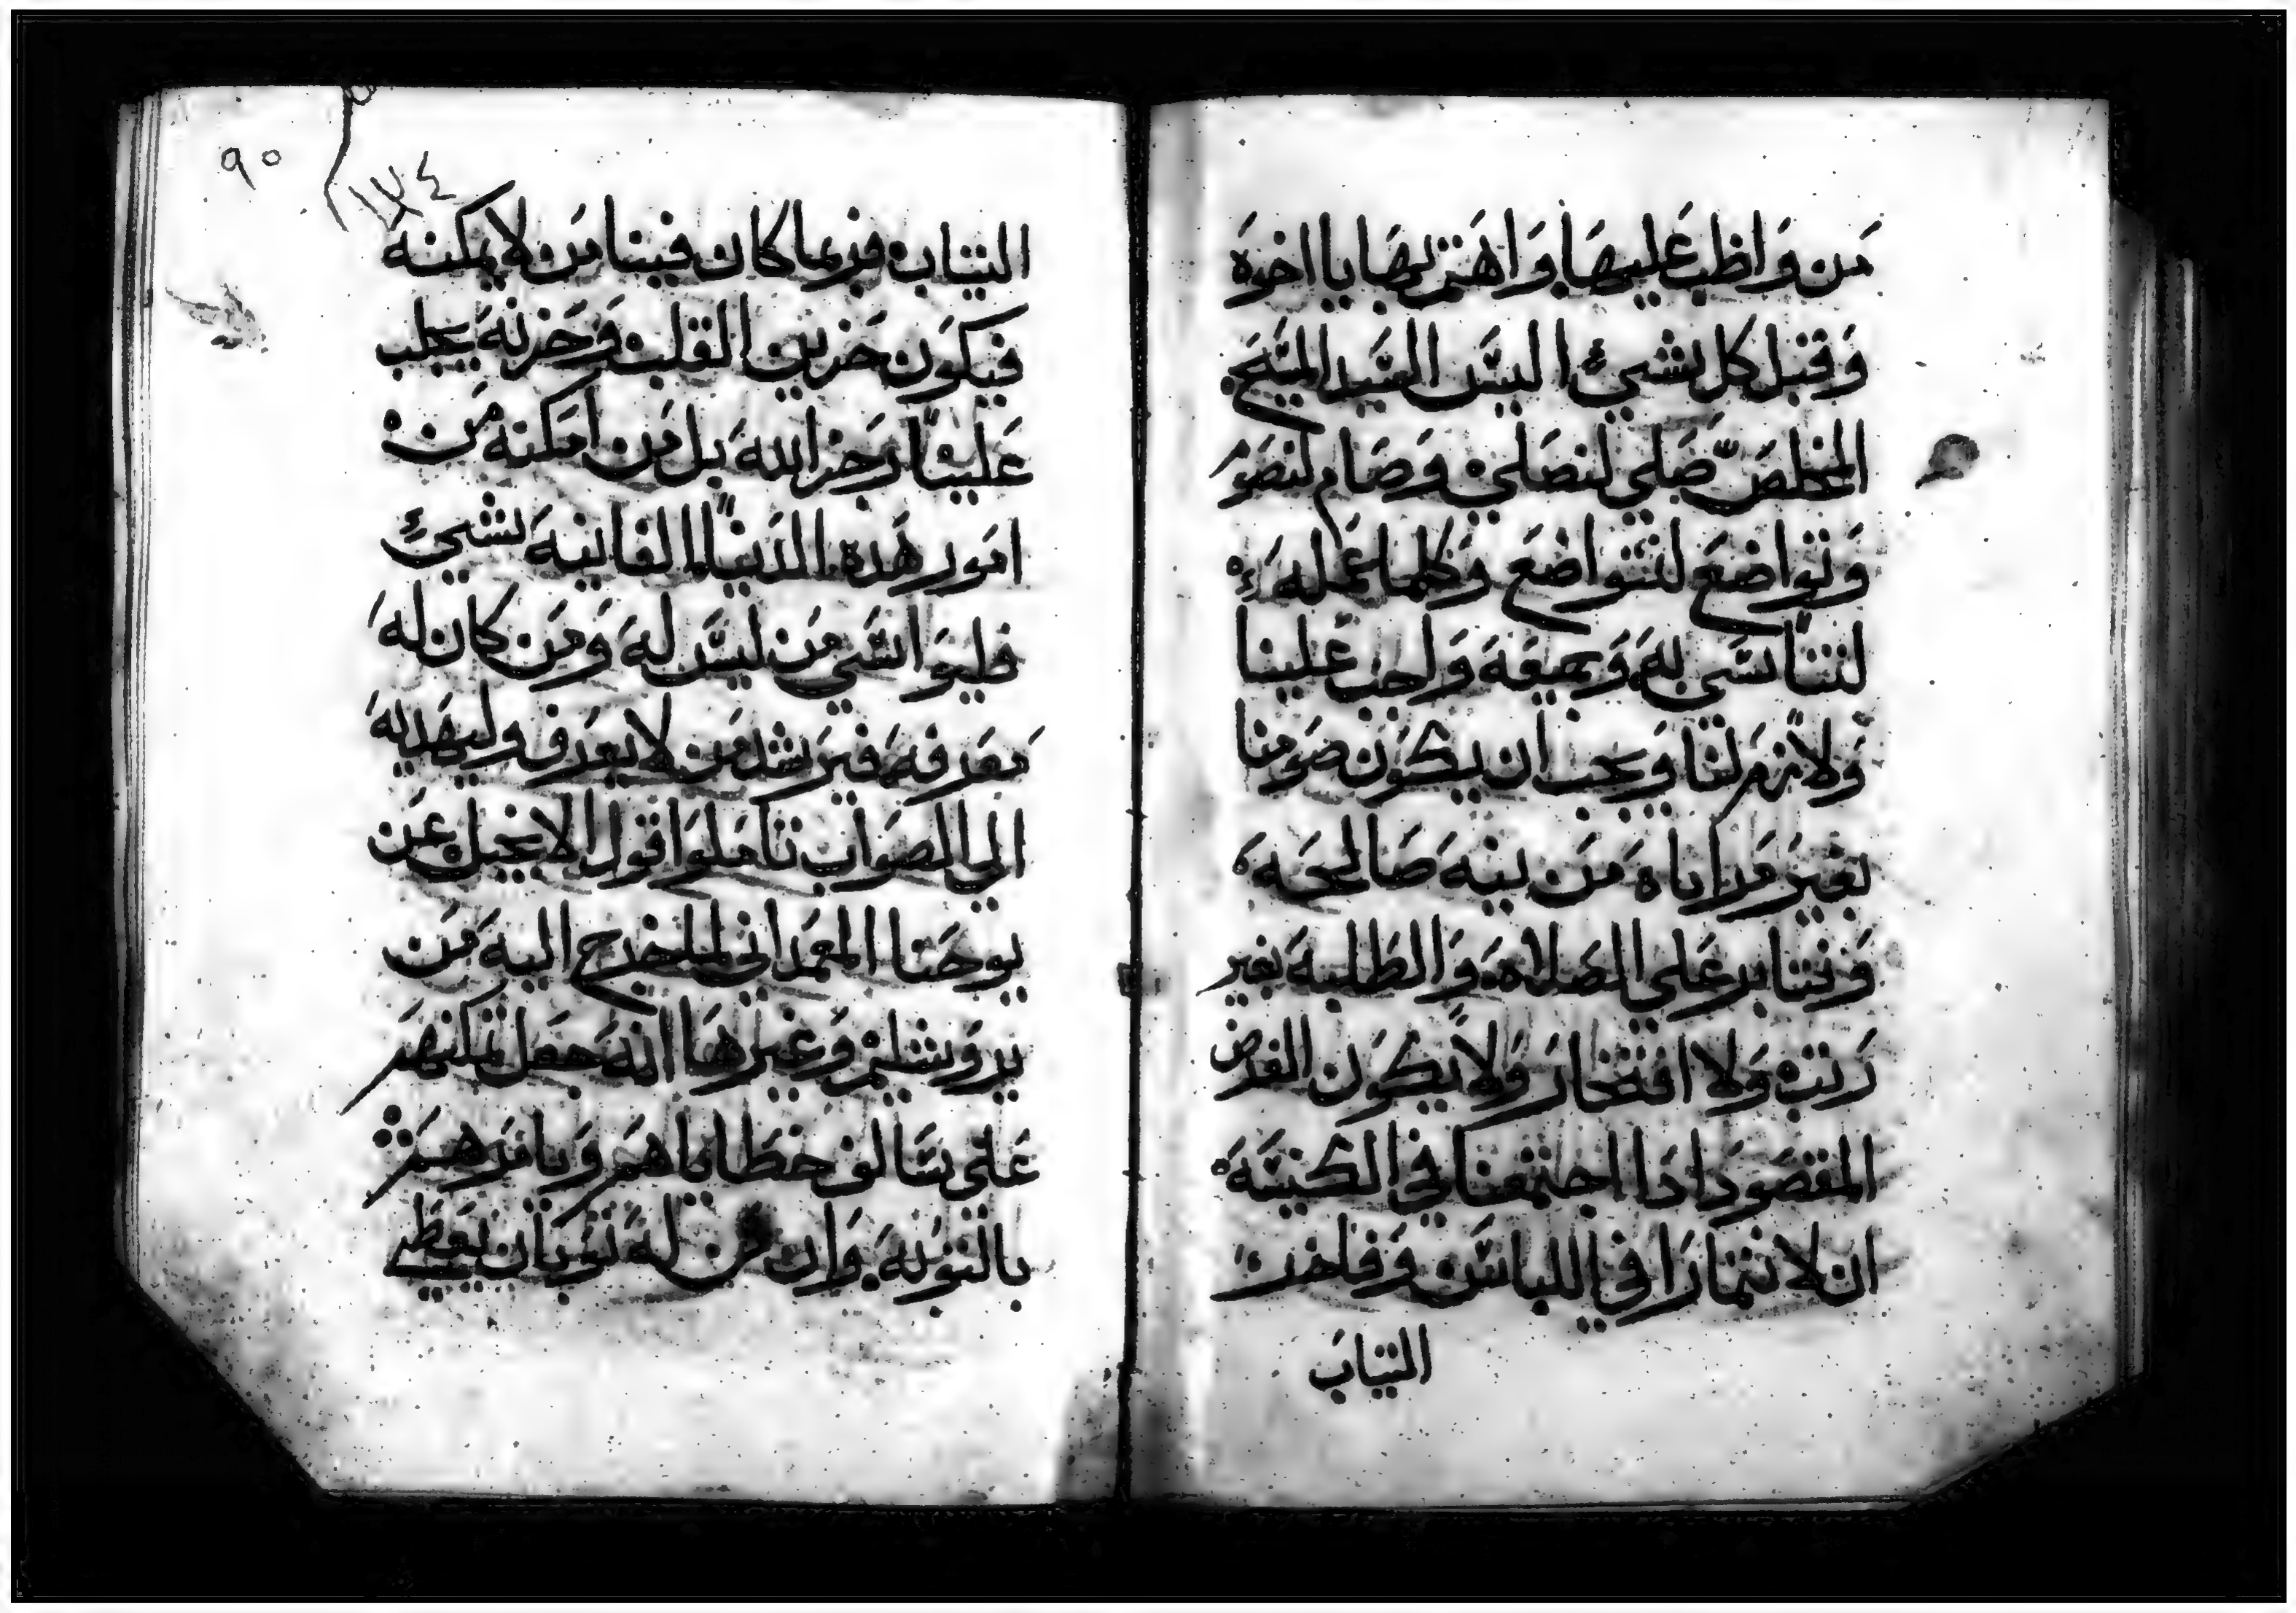 من واظب عليها واهتم بها يا اخوه
وقبل كل شيء اليس السيد المسيح
المخلص صلي لنصلي وصام لنصوم
وتواضع لنتواضع وكلما عمله
لنتاسى به وجميعه واجب علينا
ولازم لنا ويجب ان يكون صومنا
بغير مراياه من نيه صالحه
ونتابر على الصلاه والطلبه بغير
رتبه ولا افتخار ولا يكون الغرض
المقصود اذا اجتمعنا في الكنيسه
ان لا نتمارا في اللباس وفاخر
التياب
٩٠
١٧٤
التياب فربما كان فينا من لا يمكنه
فيكون حزين القلب وحزنه يجلب
علينا رجز الله بل من امكنه من
امور هذه الدنيا الفانيه بشيء
فليواسي من ليس له ومن كان له
معرفه فيرشد من لا يعرف وليهديه
الي الصواب تاملوا قول الانجيل عن
يوحنا المعمداني لما خرج اليه من
يروشليم وغيرها انه جعل تمكنهم
علي سالف خطاياهم ويامرهم
بالتوبه وان من له توبان يعطي